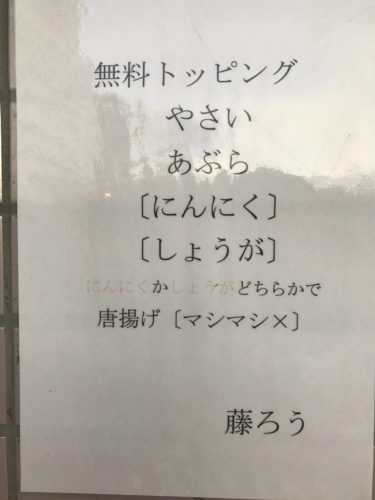 無料トッピング
やさい
あぶら
〔にんにく〕
〔しょうが〕
にんにくかしょうがどちらかで
唐揚げ〔マシマシ×〕
藤ろう